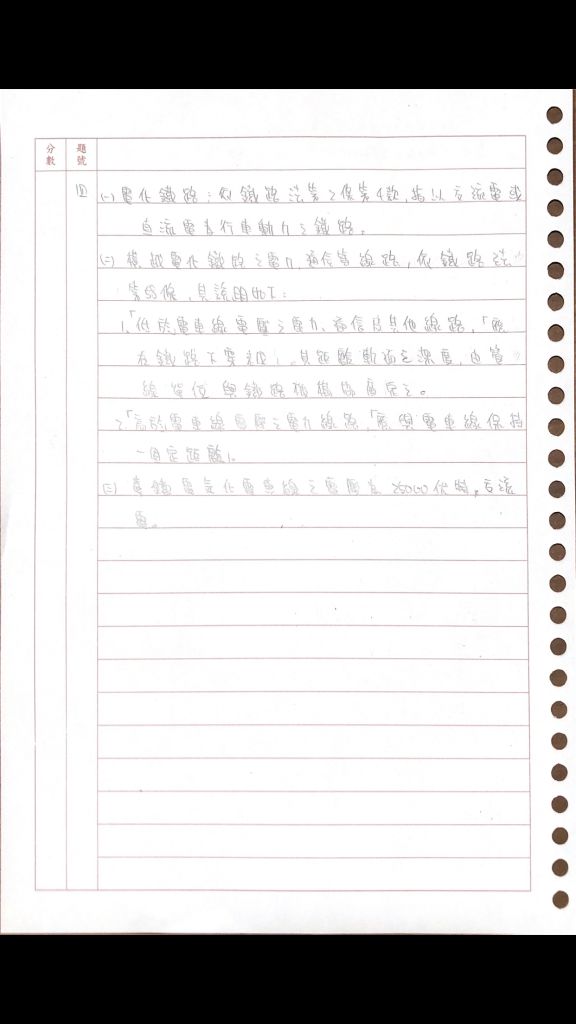 分數 題號
四 (一) 電化鐵路：依鐵路法第2條第4款，為以交流電或
直流電為行車動力之鐵路。
(二) 橫越電化鐵路之電力、通信等線路，依鐵路法
第55條，其說明如下：
1.「低於電車線電壓之電力、通信及其他線路」，「應
在鐵路下穿越」，其距離軌面之深度，由管
線單位與鐵路機構協商定之。
2.「高於電車線電壓之電力線路」，「應與電車線保持
一固定距離」。
(三) 臺鐵電氣化電車線之電壓為25000伏特，交流
電。